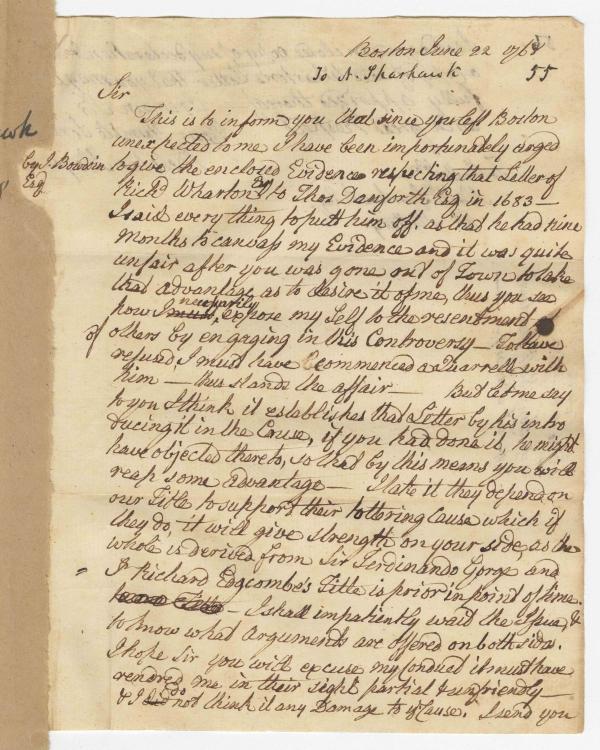 Boston June 22 176
To N. Sparhawk 55
Sir
This is to inform you that since you left Boston
unexpected to me I have been importunately urged
by J. Bowdoin
Esq
to give the enclosed Evidence respecting that Letter of
Richd Wharton Esq to Thos Danforth Esq in 1683 —
I said every thing to putt him off. as that he had nine
Months to canvass my Evidence and it was quite
unfair after you was gone out of Town to take
that advantage as to desire it of me, thus you see
how I must necessarily expose my Self to the resentment
of others by engaging in this Controversy — To have
refused I must have Commenced a Quarrell with
him — thus stands the affair — But let me say
to you I think it establishes that Letter by his intro
ducing it in the Cause, if you had done it, he might
have objected thereto, so that by this means you will
reap some advantage — I take it they depend on
our Title to support their tottering Cause which if
they do, it will give strength on your side, as the
whole is derived from Sir Ferdinando Gorge and
Sr Richard Edgcombe's Title is prior in point of time.
— I shall impatiently wait the Issue, &
to know what arguments are offered on both sides.
I hope Sir you will excuse my Conduct it must have
rendred me in their sight partial & unfriendly —
& I did do not think it any Damage to yr Cause. I send you